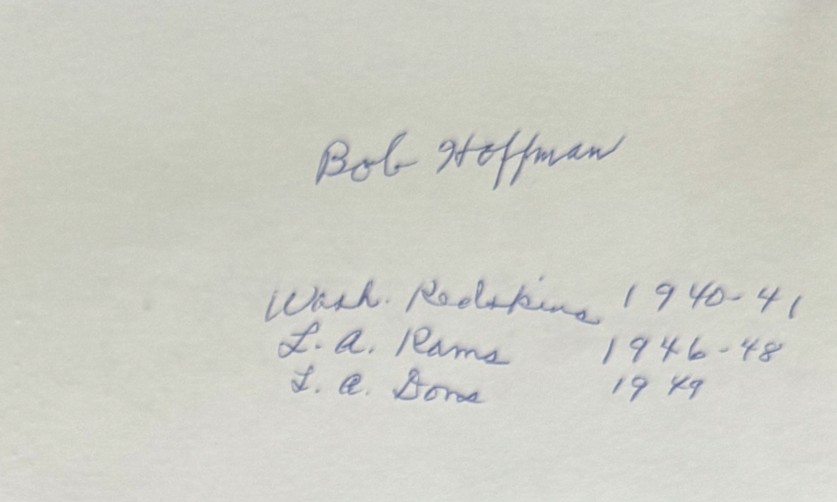 Bob Hoffman
Wash. Redskins 1940-41
L.A. Rams 1946-48
L.A. Dons 1949